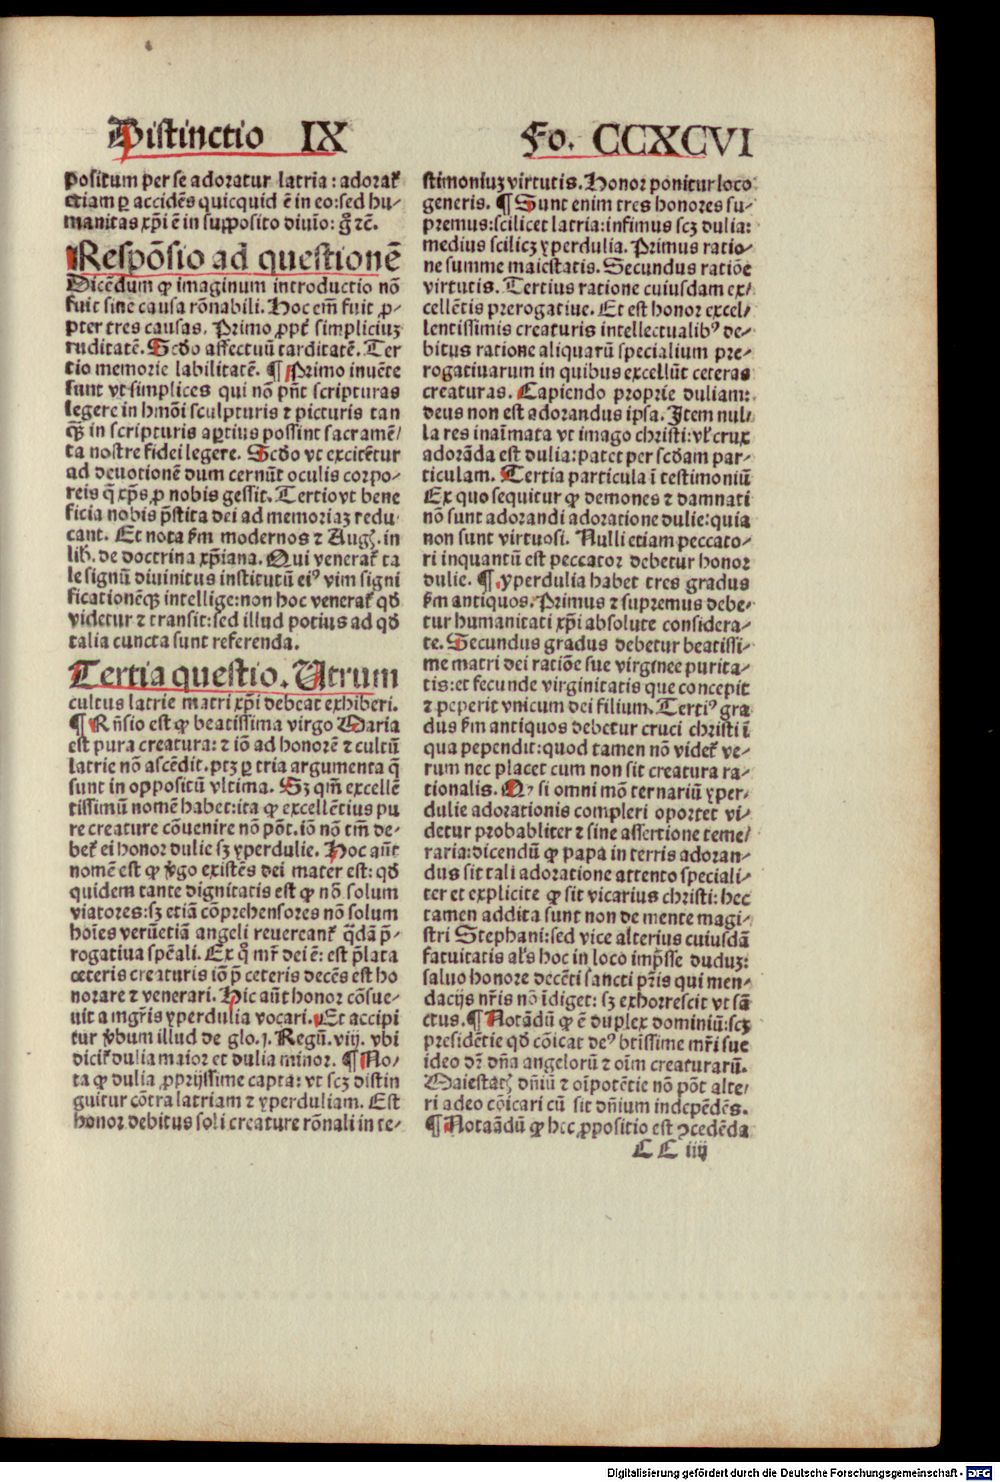 Distinctio IX
Fo. CCXCVI
positum per se adoratur latria : adorat᷑
etiam ꝑ accidẽs quicquid ẽ in eo: sed hu-
manitas xp̃i ẽ in supposito diuĩo: g̊ ⁊c̃.
Respõsio ad questionẽ
Dicẽdum ꝙ imaginum introductio nõ
fuit sine causa rõnabili. Hoc em̃ fuit ꝓ-
pter tres causas. Primo ꝓpt̃ simpliciuꝫ
ruditatẽ. Scd̃o affectuũ tarditatẽ. Ter
tio memorie labilitatẽ. ¶ Primo inuẽte
sunt vt simplices qui nõ pñt scripturas
legere in hmõi sculpturis ⁊ picturis tan
ꝙ̃ in scripturis aꝑtius possint sacramẽ/
ta nostre fidei legere. Scd̃o vt excitẽtur
ad deuotionẽ dum cernũt oculis corpo-
reis q̃ xp̃s ꝓ nobis gessit. Tertio vt bene
ficia nobis p̃stita dei ad memoriaꝫ redu-
cant. Et nota ẜm modernos ⁊ Aug. in
lib̃. de doctrina xp̃iana. Qui venerat᷑ ta
le signũ diuinitus institutũ eiꝰ vim signi
ficationẽqꝫ intellige: non hoc venerat᷑ qd̃
videtur ⁊ transit: sed illud potius ad qd̃
talia cuncta sunt referenda.
Tertia questio. Utrum
cultus latrie matri xp̃i debeat exhiberi.
¶ Rñsio est ꝙ beatissima virgo Maria
est pura creatura: ⁊ iõ ad honorẽ ⁊ cultũ
latrie nõ ascẽdit. ptꝫ ꝑ tria argumenta q̃
sunt in oppositũ vltima. Sꝫ qm̃ excellẽ
tissimũ nomẽ habet: ita ꝙ excellẽtius pu
re creature cõuenire nõ põt. iõ nõ tm̃ de-
bet᷑ ei honor dulie sꝫ yperdulie. Hoc aũt
nomẽ est ꝙ v̊go existẽs dei mater est: qd̃
quidem tante dignitatis est ꝙ nõ solum
viatores: sꝫ etiã cõprehensores nõ solum
hoĩes verũetiã angeli reuereant᷑ q̃dã p̃-
rogatiua spẽali. Ex q̊ mr̃ dei ẽ: est p̃lata
ceteris creaturis iõ p̃ ceteris decẽs est ho
norare ⁊ venerari. Hic aũt honor cõsue-
uit a mgr̃is yperdulia vocari. Et accipi
tur v̊bum illud de glo. j. Regũ. viij. vbi
dicit᷑ dulia maior et dulia minor. ¶ No-
ta ꝙ dulia ꝓprijssime capta: vt scꝫ distin
guitur cõtra latriam ⁊ yperduliam. Est
honor debitus soli creature rõnali in te-
stimoniuꝫ virtutis. Honor ponitur loco
generis. ¶ Sunt enim tres honores su-
premus: scilicet latria: infimus scꝫ dulia:
medius scilicꝫ yperdulia. Primus ratio-
ne summe maiestatis. Secundus ratiõe
virtutis. Tertius ratione cuiusdam ex/
cellẽtis prerogatiue. Et est honor excel/
lentissimis creaturis intellectualibꝰ de-
bitus ratione aliquarũ specialium pre-
rogatiuarum in quibus excellũt ceteras
creaturas. Capiendo proprie duliam:
deus non est adorandus ipsa. Item nul-
la res inaĩmata vt imago christi: vl̃ crux
adorãda est dulia: patet per scd̃am par-
ticulam. Tertia particula ĩ testimoniũ
Ex quo sequitur ꝙ demones ⁊ damnati
nõ sunt adorandi adoratione dulie: quia
non sunt virtuosi. Nulli etiam peccato-
ri inquantũ est peccator debetur honor
dulie. ¶ yperdulia habet tres gradus
ẜm antiquos. Primus ⁊ supremus debe-
tur humanitati xp̃i absolute considera-
te. Secundus gradus debetur beatissi-
me matri dei ratiõe sue virginee purita-
tis: et fecunde virginitatis que concepit
⁊ peperit vnicum dei filium. Tertiꝰ gra
dus ẜm antiquos debetur cruci christi ĩ
qua pependit: quod tamen nõ videt᷑ ve-
rum nec placet cum non sit creatura ra-
tionalis. si omni mõ ternariũ yper-
dulie adorationis compleri oportet vi-
detur probabliter ⁊ sine assertione teme/
raria: dicendũ ꝙ papa in terris adoran-
dus sit tali adoratione attento speciali-
ter et explicite ꝙ sit vicarius christi: hec
tamen addita sunt non de mente magi-
stri Stephani: sed vice alterius cuiusdã
fatuitatis al̃s hoc in loco imp̃sse duduꝫ:
saluo honore decẽti sancti pr̃is qui men-
dacijs nr̃is nõ ĩdiget: sꝫ exhorrescit vt sã
ctus. ¶ Notãdũ ꝙ ẽ duplex dominiũ: scꝫ
presidẽtie qd̃ cõicat deꝰ btĩssime mr̃i sue
ideo dr̃ dña angelorũ ⁊ oĩm creaturarũ.
Maiestatꝭ dñiũ ⁊ oĩpotẽtie nõ põt alte/
ri adeo cõicari cũ sit dñium indepẽdẽs.
¶ Notaãdũ ꝙ hec ꝓpositio est ꝯcedẽda
CC iiij
Digitalisierung gefördert durch die Deutsche Forschungsgemeinschaft - DFG